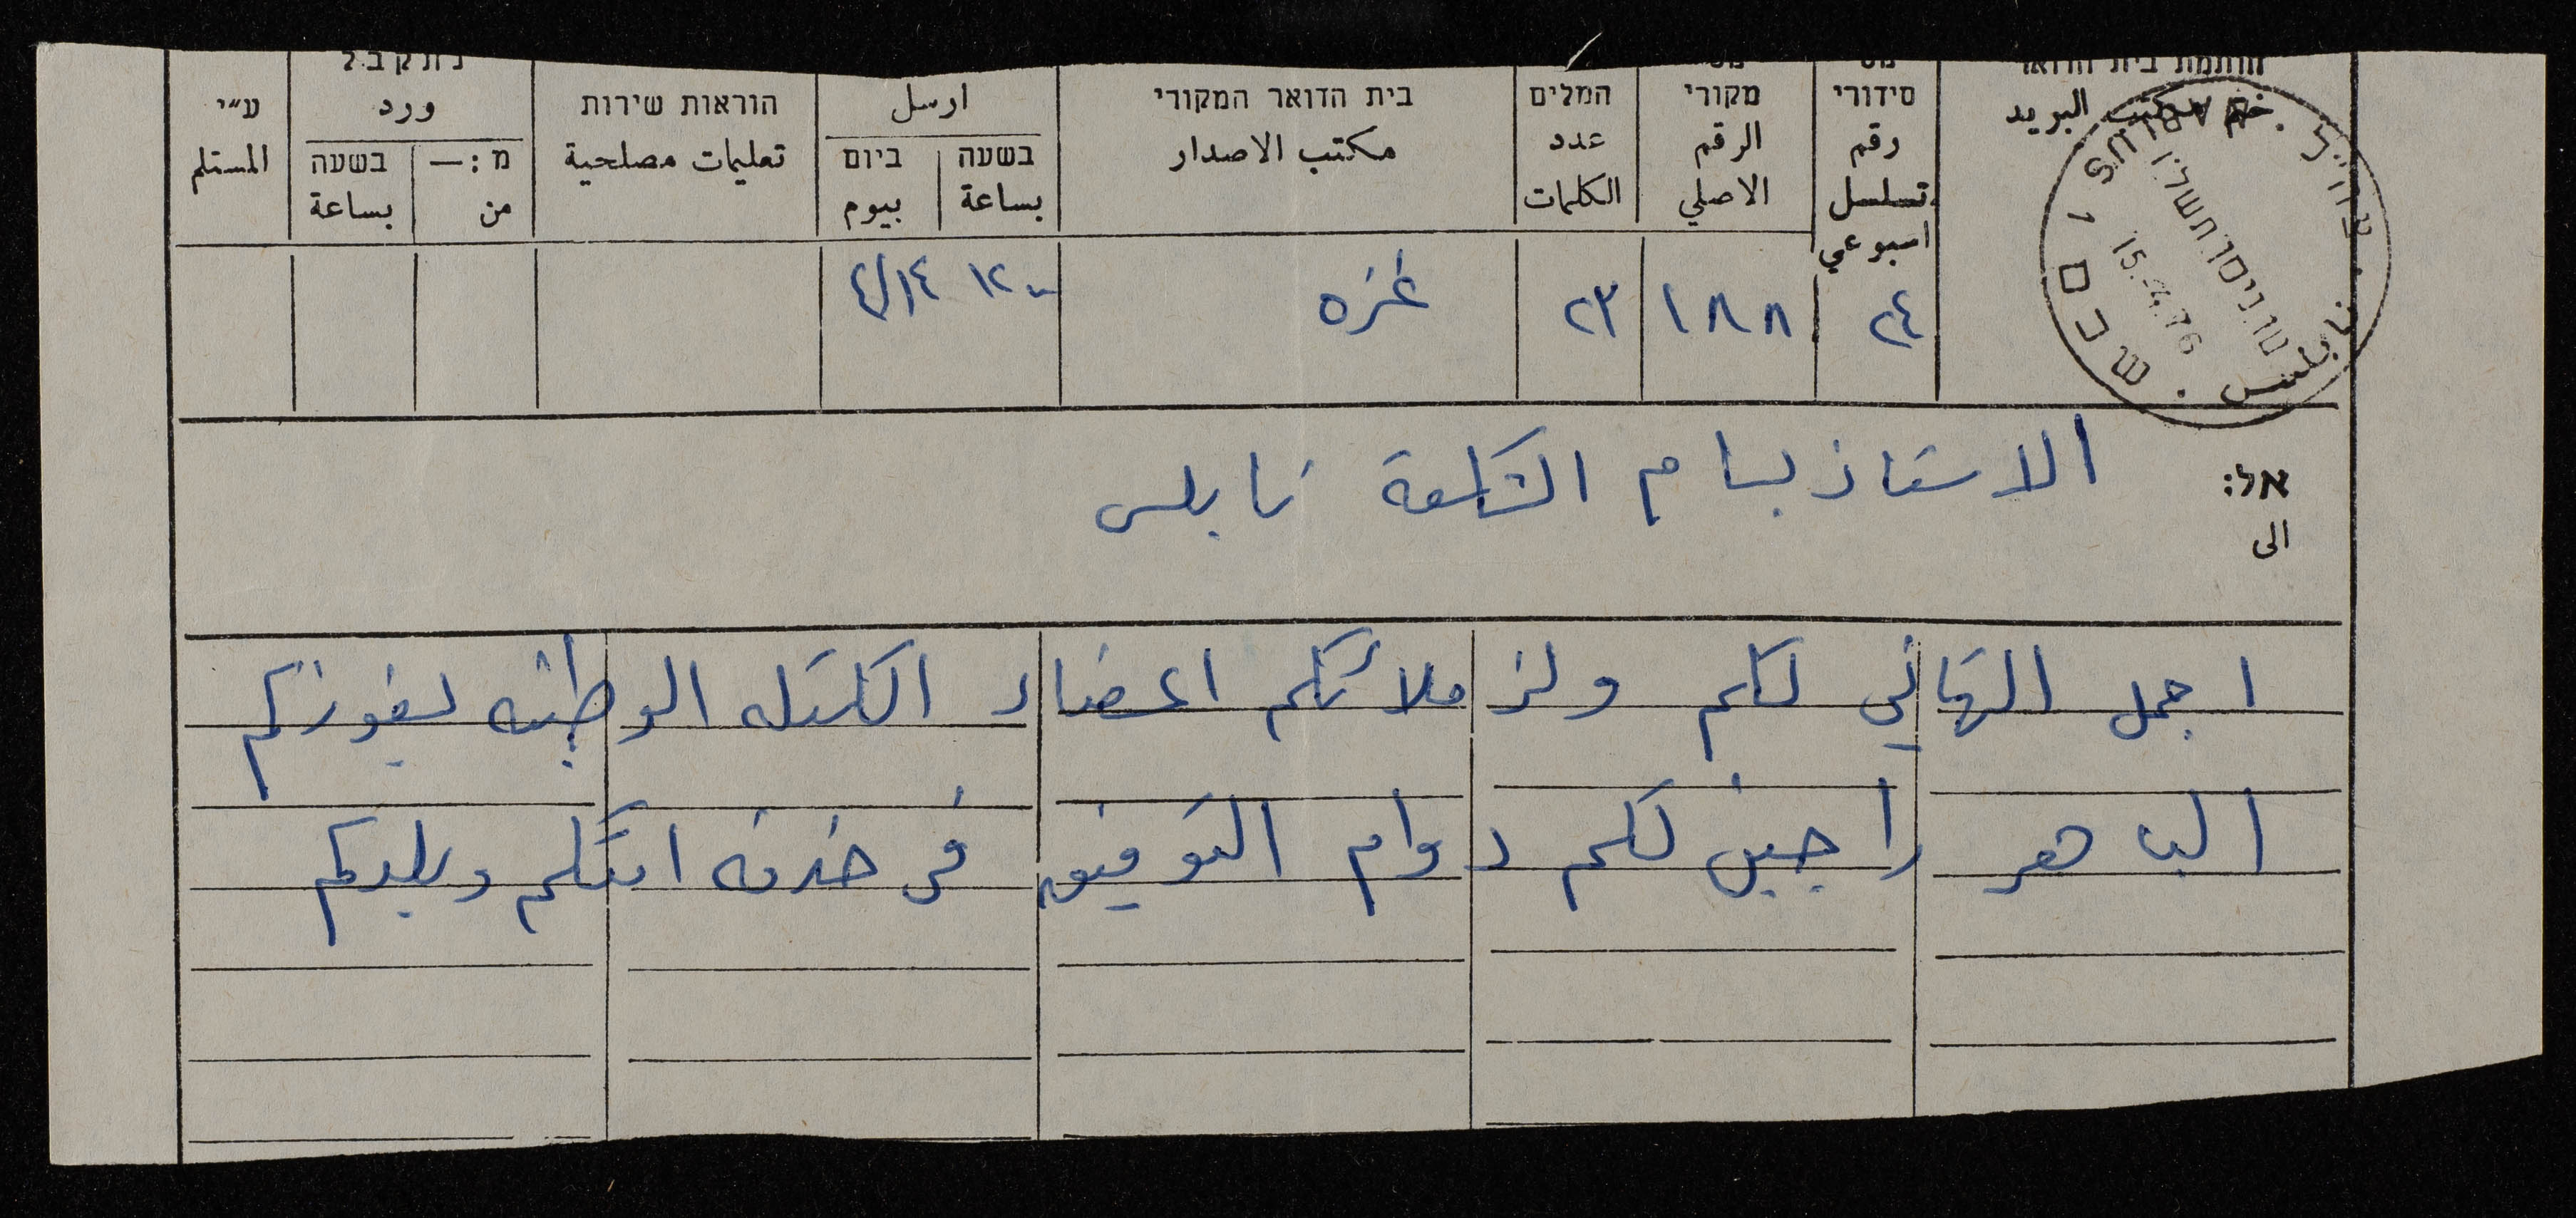 חותמת בית הדואר
ختم مكتب البريد
סידורי
رقم
تسلسل
اسبوعي
מקורי
الرقم
الاصلي
המלים
عدد
الكلمات
בית הדואר המקורי
مكتب الاصدار
ارسل
בשעה ביום
بساعة بيوم
הוראות שירות
تعليمات مصلحية
נתקבל
ورد
מ:— בשעה
من بساعة
ע״י
المستلم
NABLUS
צה״ל
שכם 1
نابلس
טו ניסן תשל״ו
15.4.76
٢٤ ١٨٨ ٢٣ غزه ١٢٠٠ ٤/١٤
אל:
الى
الاستاذ بسام الشكعة نابلس
اجمل التهاني لكم ولزملائكم اعضاء الكتله الوطنيه لفوزكم
الباهر راجين لكم دوام التوفيق في خدمه امتكم وبلدكم